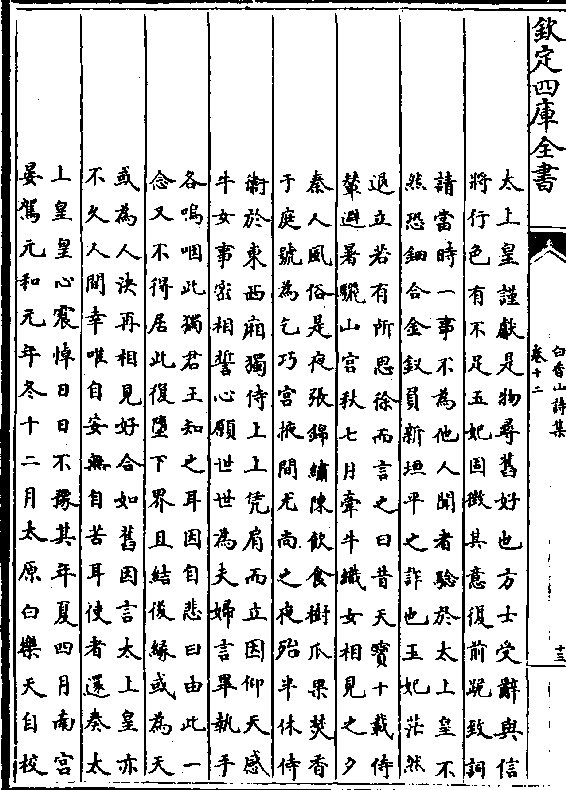 欽定四庫全書
白香山詩集
卷十二
十三
太上皇謹獻是物尋舊好也方士受辭與信
將行色有不足玉妃固徵其意復前跪致詞
請當時一事不為他人聞者驗於太上皇不
然恐鈿合金釵負新垣平之詐也玉妃茫然
退立若有所思徐而言之曰昔天寶十載侍
輦避暑驪山宮秋七月牽牛織女相見之夕
秦人風俗是夜張錦繡陳飲食樹瓜果焚香
于庭號為乞巧宮掖間尤尚之夜殆半休侍
衛於東西廂獨侍上上凭肩而立因仰天感
牛女事密相誓心願世世為夫婦言畢執手
各嗚咽此獨君王知之耳因自悲曰由此一
念又不得居此復墮下界且結後緣或為天
或為人決再相見好合如舊因言太上皇亦
不久人間幸唯自安無自苦耳使者還奏太
上皇皇心震悼日日不豫其年夏四月南宮
晏駕元和元年冬十二月太原白樂天自校